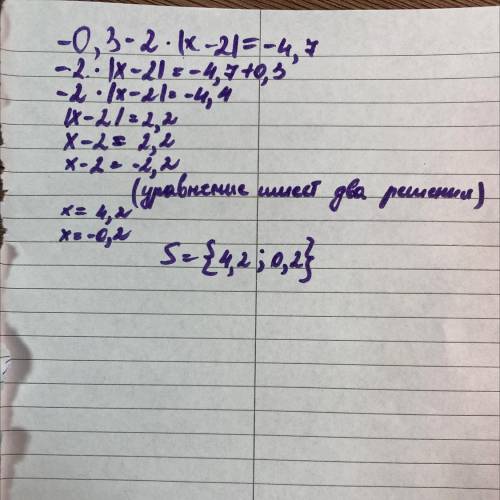 -0,3-2·|x-2|=-4,7
-2·|x-2|=-4,7+0,3
-2·|x-2|=-4,4
|x-2|=2,2
x-2=2,2
x-2=-2,2
(уравнение имеет два решения)
x=4,2
x=-0,2
S={4,2;0,2}